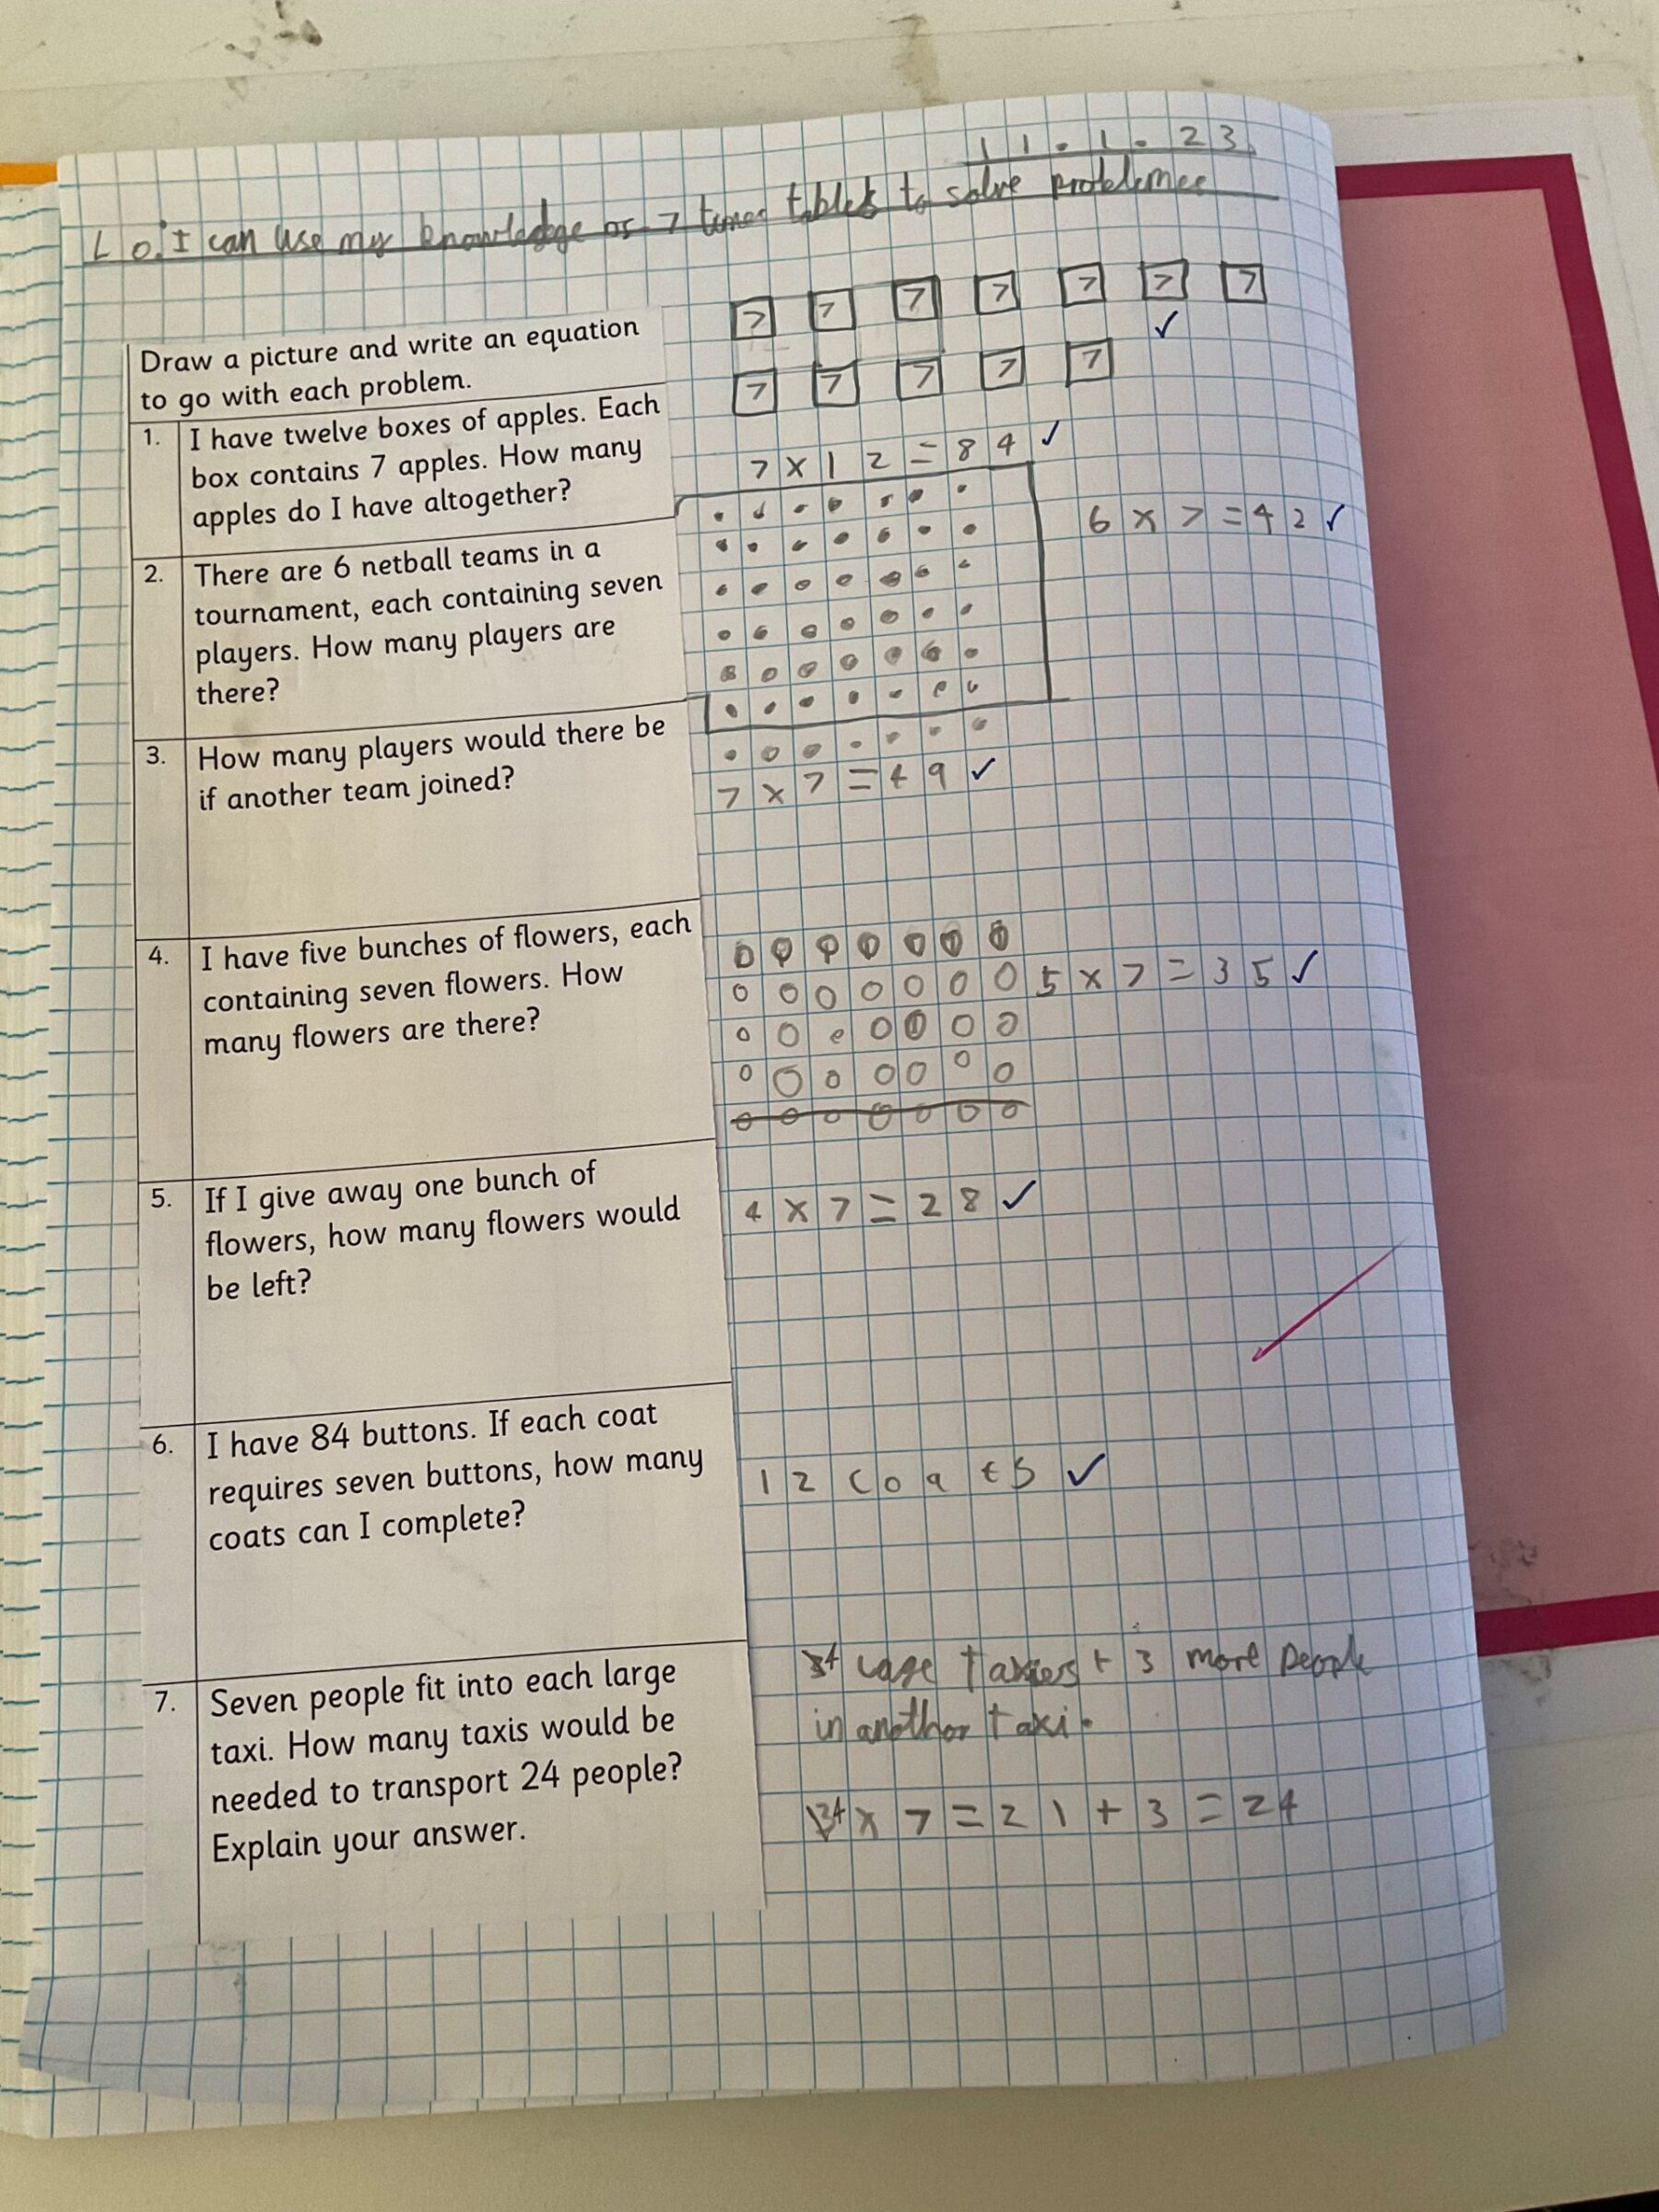 11.1.23
L o: I can use my knowledge of 7 times tables to solve problemes
7 7 7 7 7 7 7
Draw a picture and write an equation
to go with each problem.
7 7 7 7 7
1. I have twelve boxes of apples. Each
box contains 7 apples. How many
apples do I have altogether?
7 x 12 = 84 ✓
2. There are 6 netball teams in a
tournament, each containing seven
players. How many players are
there?
6 x 7 = 42 ✓
3. How many players would there be
if another team joined?
7 x 7 = 49 ✓
4. I have five bunches of flowers, each
containing seven flowers. How
many flowers are there?
5 x 7 = 35 ✓
5. If I give away one bunch of
flowers, how many flowers would
be left?
4 x 7 = 28 ✓
6. I have 84 buttons. If each coat
requires seven buttons, how many
coats can I complete?
12 coats ✓
7. Seven people fit into each large
taxi. How many taxis would be
needed to transport 24 people?
Explain your answer.
+ 3 more people
in another taxi.
x 7 = 21 + 3 = 24